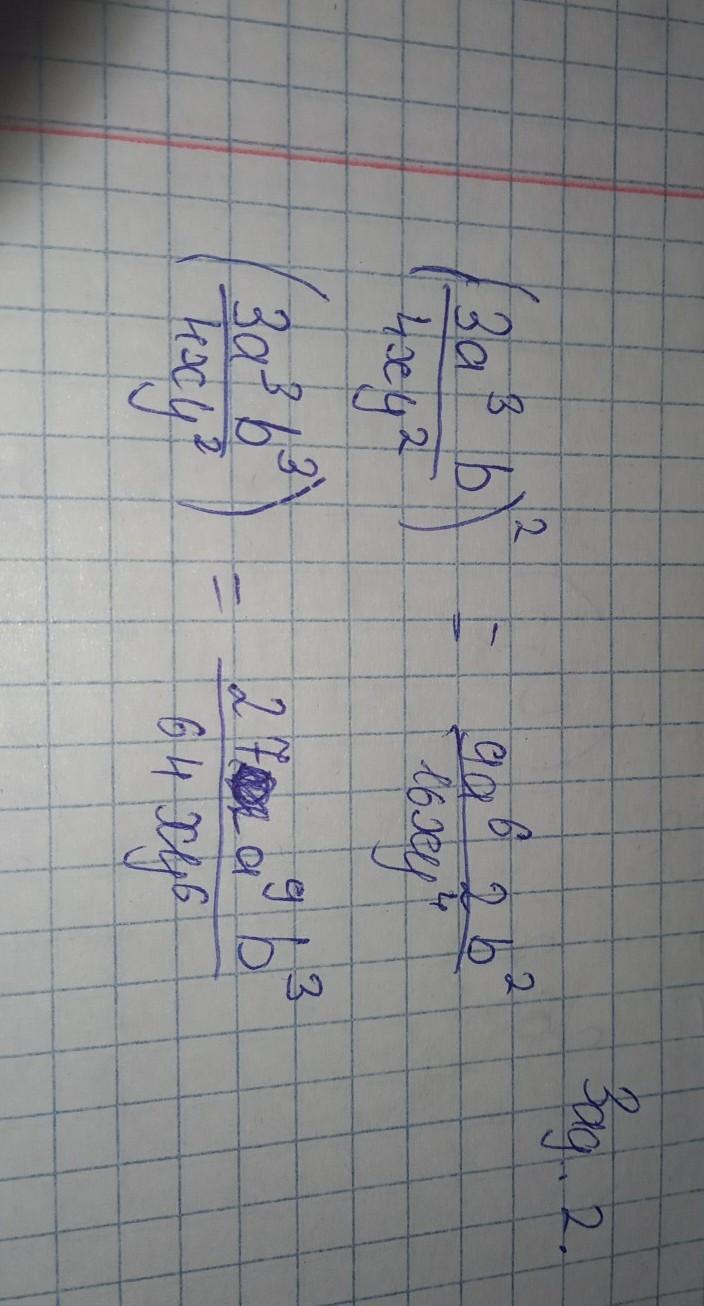 Зад. 2.
(3a³b/4xy²)² = 9a⁶2b²/16xy⁴
(3a³b³/4xy²) = 27a⁹b³/64xy⁶